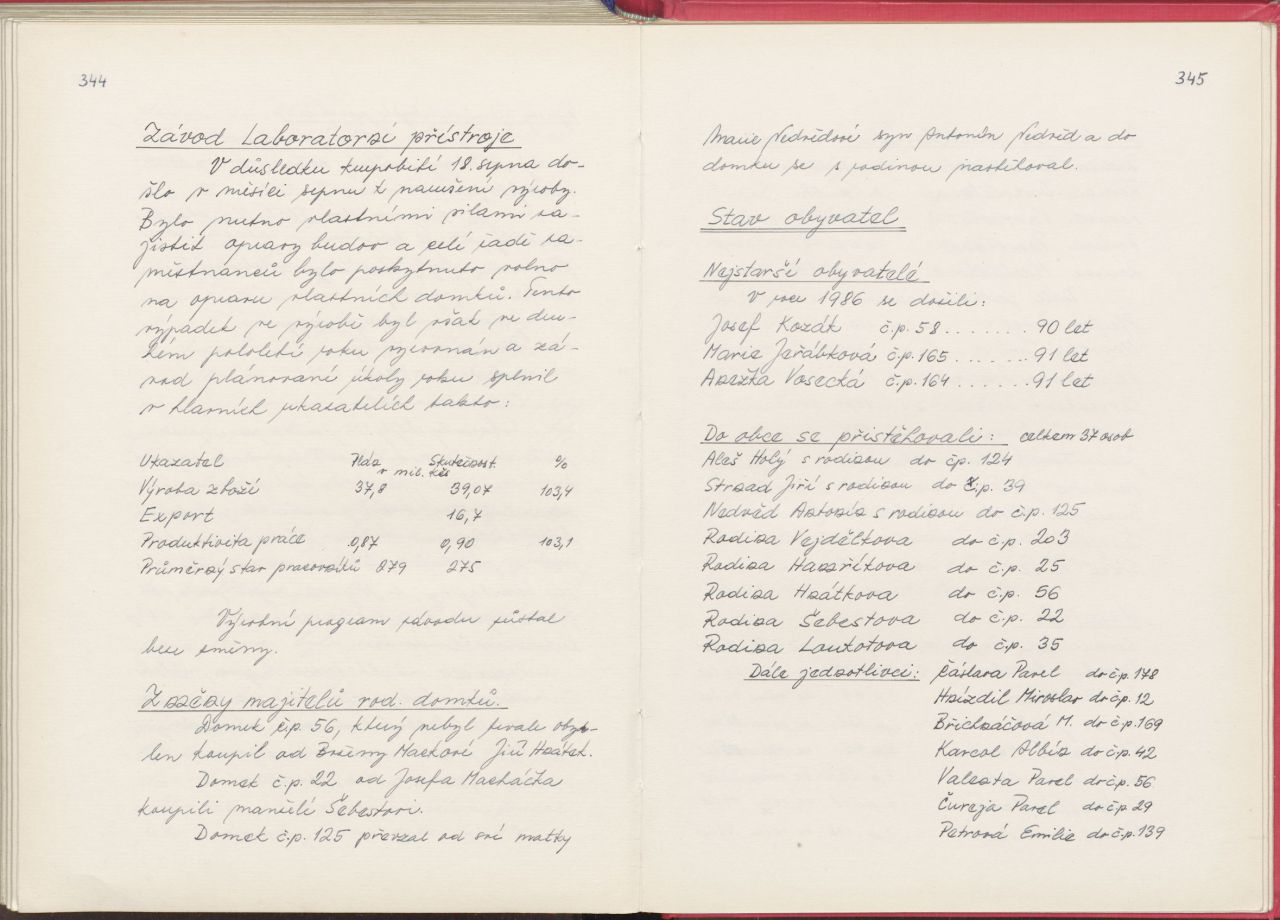 344
Závod Laboratorní přístroje
V důsledku krupobití 18. srpna do-
šlo v měsíci srpnu k narušení výroby.
Bylo nutno vlastními silami za-
jistit opravy budov a celé řadě za-
městnanců bylo poskytnuto volno
na opravu vlastních domků. Tento
výpadek ve výrobě byl však ve dru-
hém pololetí roku vyrovnán a zá-
vod plánované úkoly roku splnil
v hlavních ukazatelích takto:
Ukazatel Plán Skutečnost %
v mil. Kčs
Výroba zboží 37,8 39,07 103,4
Export 16,7
Produktivita práce 0,87 0,90 103,1
Průměrný stav pracovníků 279 275
Výrobní program závodu zůstal
beze změny.
Změny majitelů rod. domků.
Domek č.p. 56, který nebyl trvale obyd-
len koupil od Boženy Mackové Jiří Hnátek.
Domek č.p. 22 od Josefa Macháčka
koupili manželé Šebestovi.
Domek č.p. 125 převzal od své matky
345
Marie Nedvědové syn Antonín Nedvěd a do
domku se s rodinou nastěhoval.
Stav obyvatel
Nejstarší obyvatelé
V roce 1986 se dožili:
Josef Kozák č.p. 58 . . . . . . . 90 let
Marie Jeřábková č.p. 165 . . . . . . 91 let
Anežka Vosecká č.p. 164 . . . . . . 91 let
Do obce se přistěhovali: celkem 37 osob
Aleš Holý s rodinou do čp. 124
Strnad Jiří s rodinou do č.p. 39
Nedvěd Antonín s rodinou do č.p. 125
Rodina Vejdělkova do č.p. 203
Rodina Hanzlíkova do č.p. 25
Rodina Hnátkova do č.p. 56
Rodina Šebestova do č.p. 22
Rodina Loukotova do č.p. 35
Dále jednotlivci: Čáslava Pavel do č.p. 178
Hnízdil Miroslav do č.p. 12
Břichnáčová M. do č.p. 169
Karcol Albín do č.p. 42
Valenta Pavel do č.p. 56
Čureja Pavel do č.p. 29
Petrová Emilie do č.p. 139